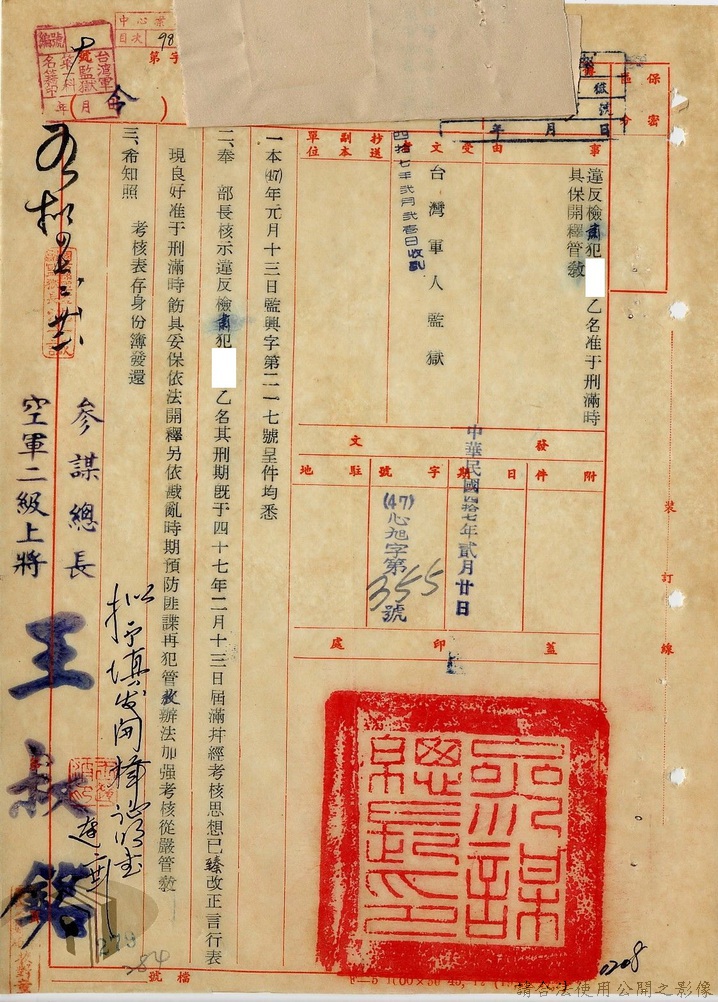 保密
區分
裝訂線
事由
違反檢肅犯 乙名准于刑滿時
具保開釋管教
受文者
台灣軍人監獄
抄送副本單位
四拾七年貳月貳壹日收到
發文
附件
日期
中華民國四拾七年貳月廿日
字號
(47)心旭字第355號
駐地
蓋印處
參謀總長印
一本(47)年元月十三日監興字第二一七號呈件均悉
二、奉 部長核示違反檢肅犯 乙名其刑期既于四十七年二月十三日屆滿并經考核思想已臻改正言行表
現良好准于刑滿時飭具妥保依法開釋另依戡亂時期預防匪諜再犯管教辦法加强考核從嚴管教
三、希知照
考核表存身份簿發還
參謀總長
空軍二級上將 王叔銘
令
年 月 日
年 月 日
中心業
目次 98
字第 號
台灣軍
監獄
編號
擬予填发開釋證明書
檔號
279
284
0208
請合法使用公開之影像